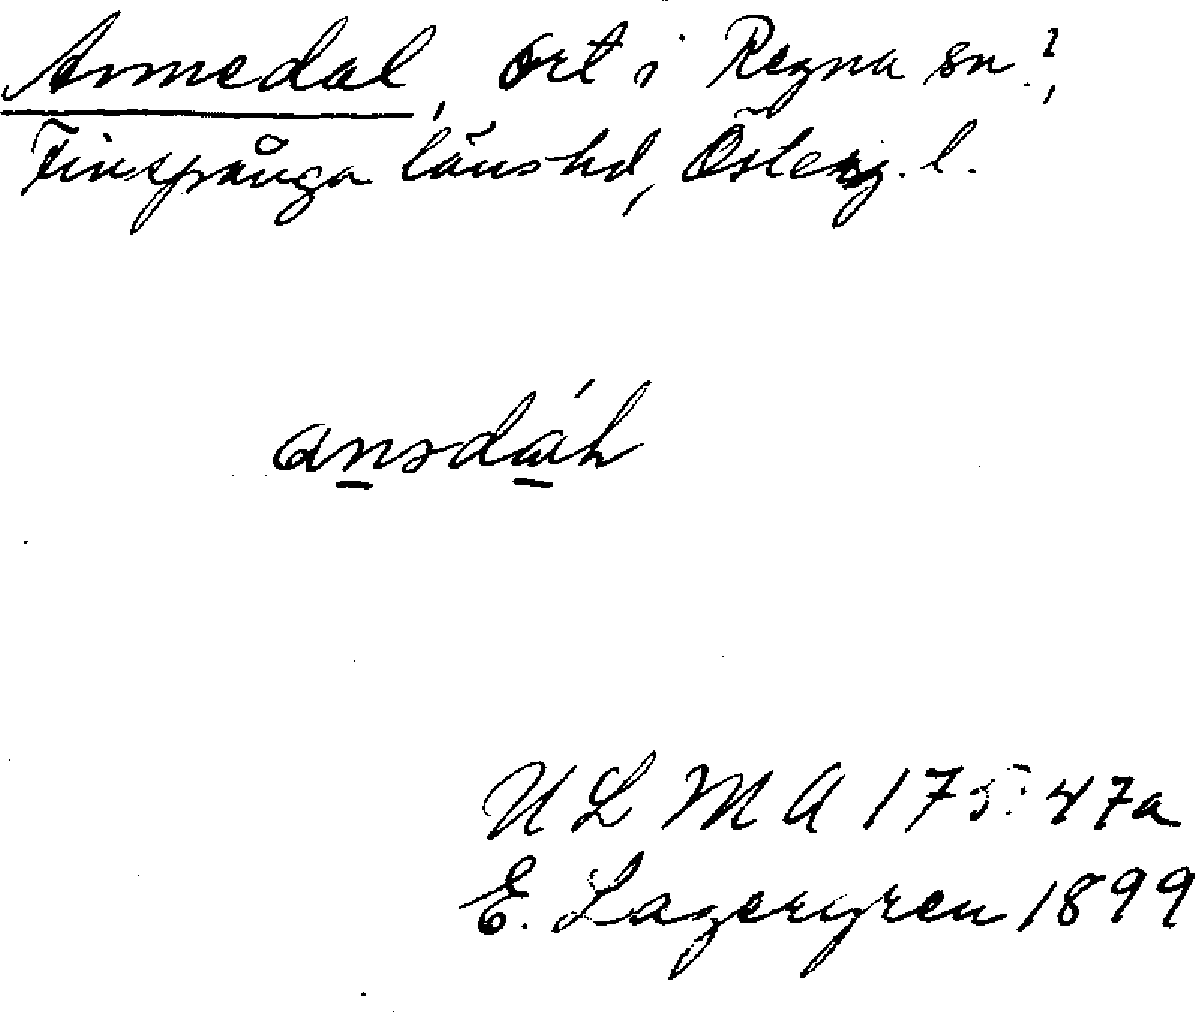 Annedal, ort i Regna sn?,
Finspånga länshd, Österg. l.
ULMA 175:47a
E. Lagergren 1899